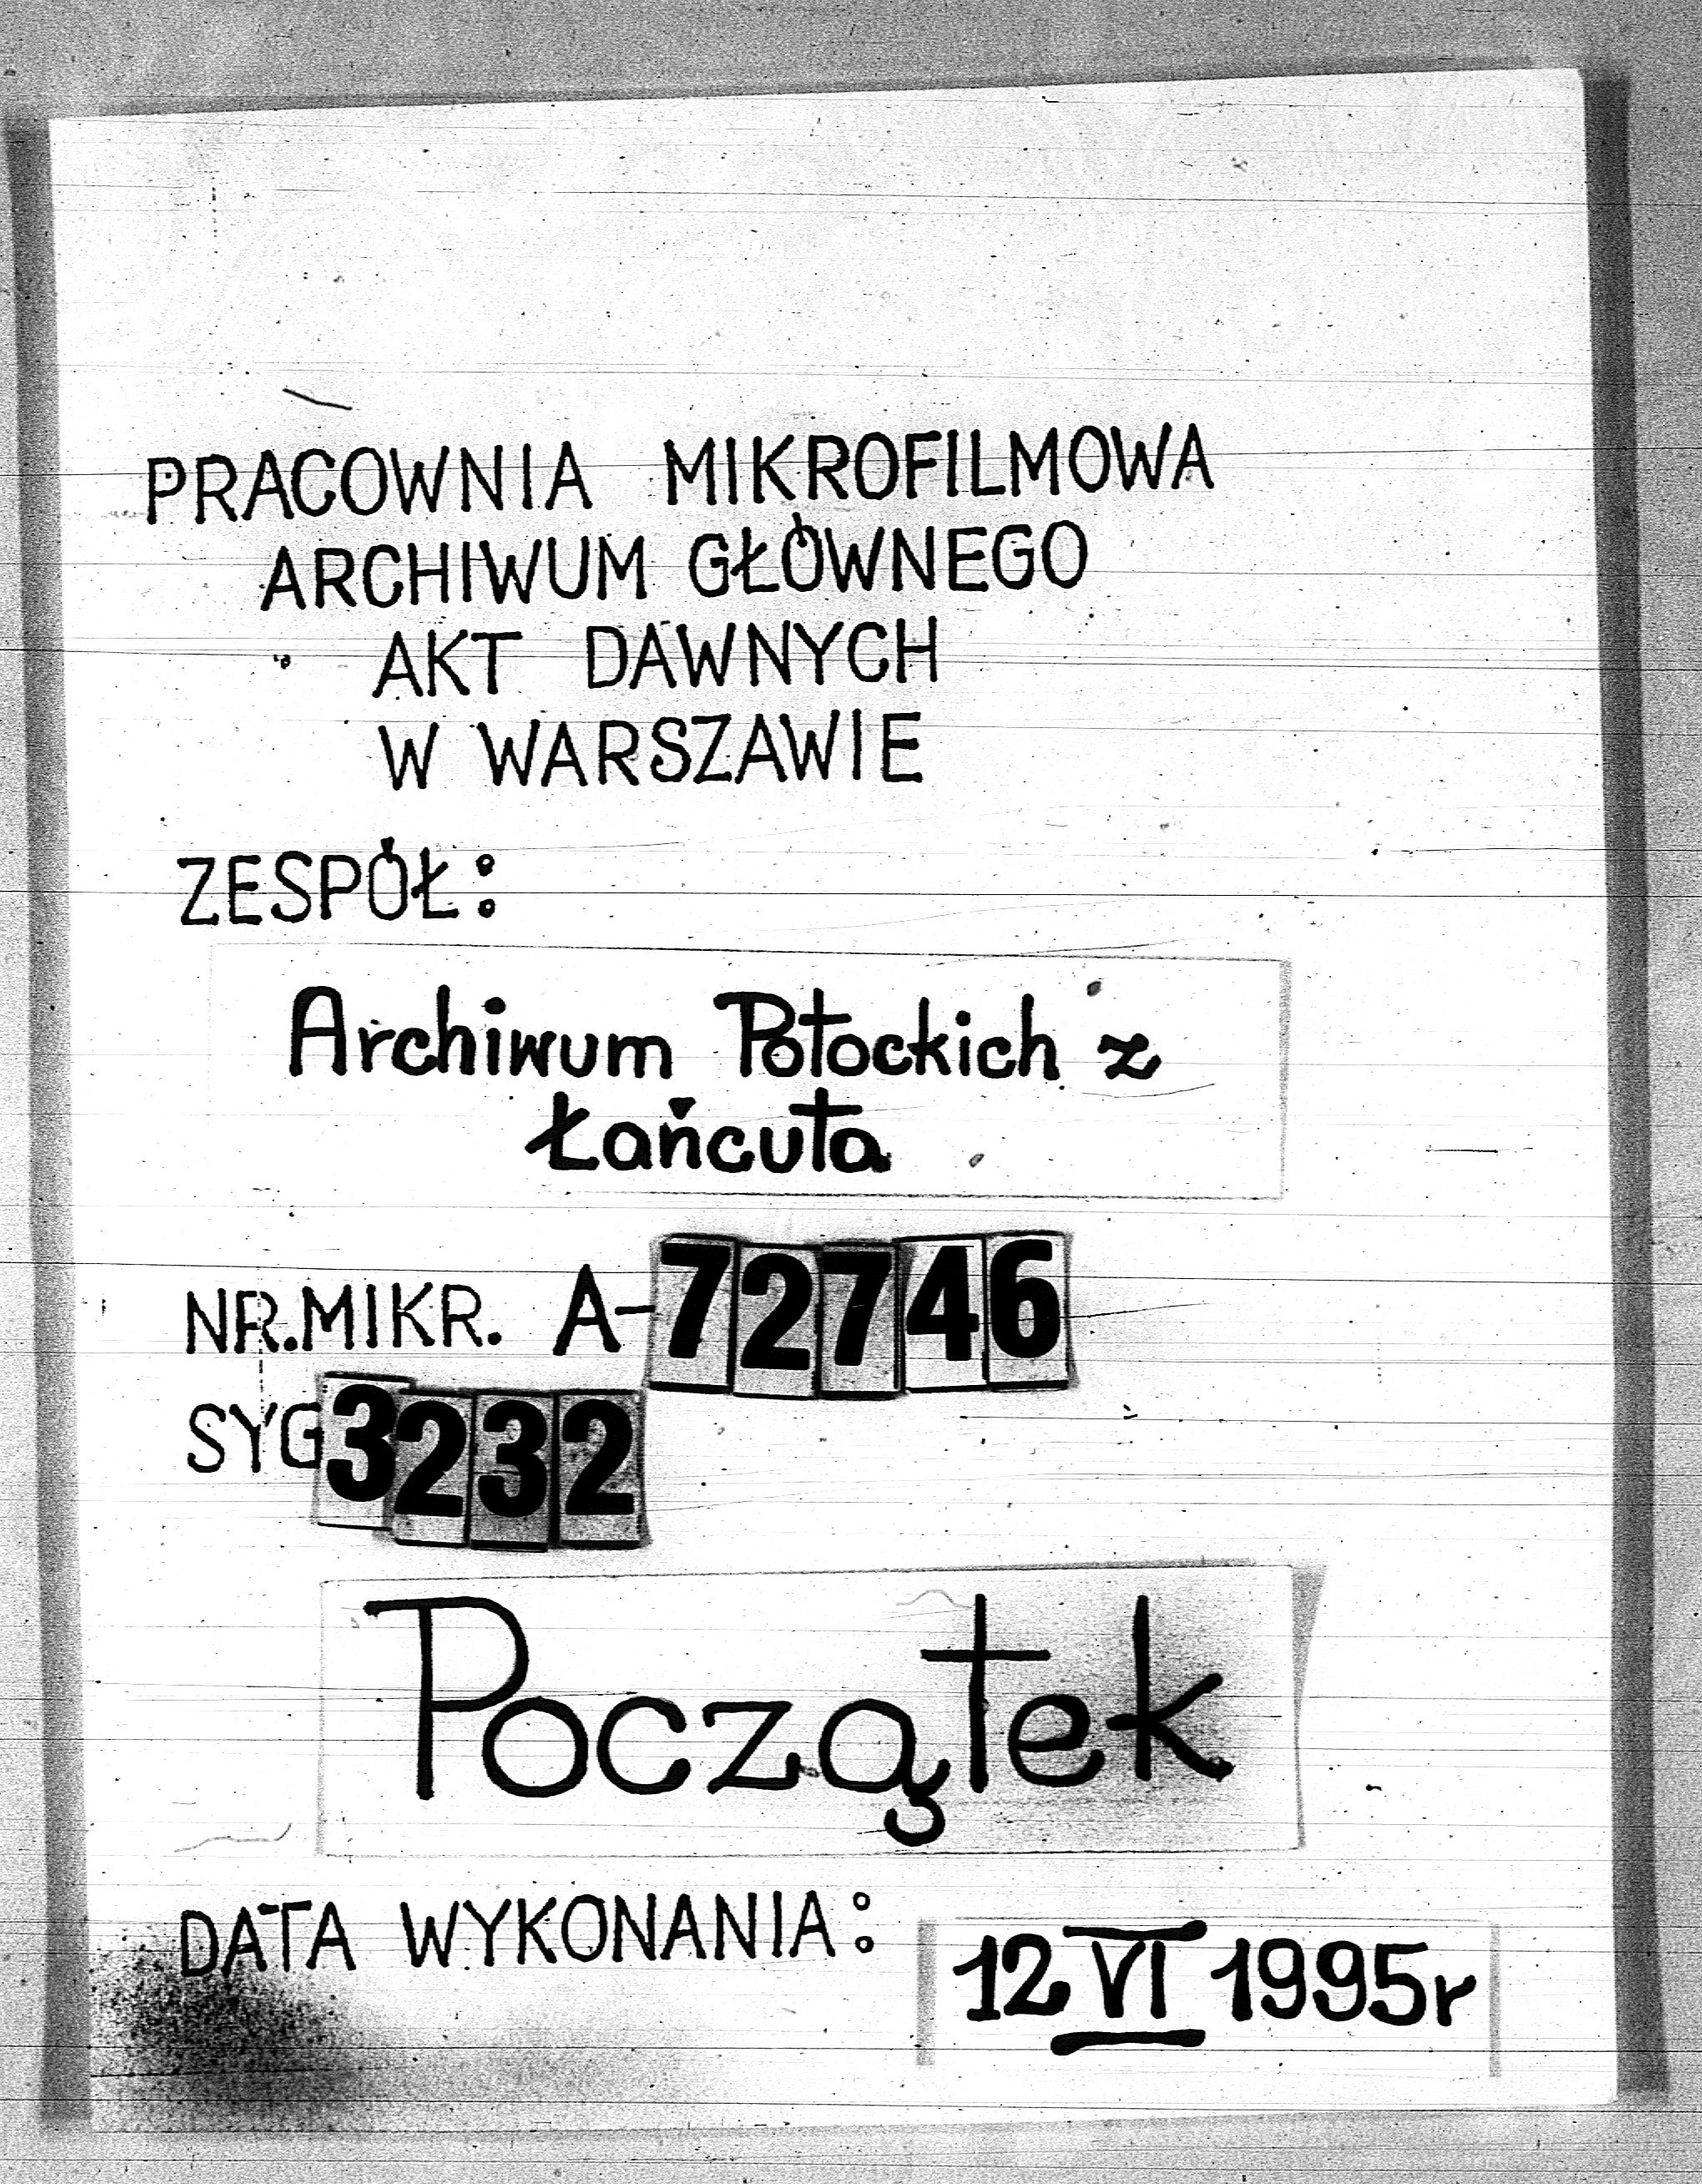 PRACOWNIA MIKROFILMOWA
ARCHIWUM GŁÓWNEGO
AKT DAWNYCH
W WARSZAWIE
ZESPÓŁ:
Archiwum Potockich z
Łańcuta
NR.MIKR. A-72746
SYG 3232
Początek
DATA WYKONANIA: 12 VI 1995r